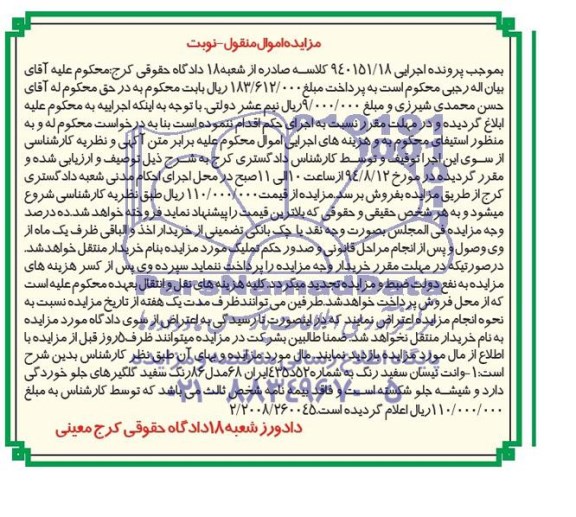 مزایده اموال منقول-نوبت
بموجب پرونده اجرایی ۹۴۰۱۵۱/۱۸ کلاسه صادره از شعبه ۱۸ دادگاه حقوقی کرج:محکوم علیه آقای
بیان اله رجبی محکوم است به پرداخت مبلغ ۱۸۳/۶۱۲/۰۰۰ ریال بابت محکوم به در حق محکوم له آقای
حسن محمدی شیرزی و مبلغ ۹/۰۰۰/۰۰۰ریال نیم عشر دولتی. با توجه به اینکه اجراییه به محکوم علیه
ابلاغ گردیده و در مهلت مقرر نسبت به اجرای حکم اقدام ننموده است بنا به درخواست محکوم له و به
منظور استیفای محکوم به و هزینه های اجرایی اموال محکوم علیه برابر متن آتی و نظریه کارشناسی
از سوی این اجرا توقیف و توسط کارشناس دادگستری کرج به شرح ذیل توصیف و ارزیابی شده و
مقرر گردیده در مورخ ۹۴/۸/۱۲ از ساعت ۱۰ الی ۱۱ صبح در محل اجرای احکام مدنی شعبه دادگستری
کرج از طریق مزایده بفروش برسد.مزایده از قیمت ۱۱۰/۰۰۰/۰۰۰ ریال طبق نظریه کارشناسی شروع
میشود و به هر شخص حقیقی و حقوقی که بالاترین قیمت را پیشنهاد نماید فروخته خواهد شد.ده درصد
وجه مزایده فی المجلس بصورت وجه نقد یا چک بانکی تضمینی از خریدار اخذ و الباقی ظرف یک ماه از
وی وصول و پس از انجام مراحل قانونی و صدور حکم تملیک مورد مزایده بنام خریدار منتقل خواهدشد.
درصورتیکه در مهلت مقرر خریدار وجه مزایده را پرداخت ننماید سپرده وی پس از کسر هزینه های
مزایده به نفع دولت ضبط و مزایده تجدید میگردد.کلیه هزینه های نقل و انتقال بعهده محکوم علیه است
که از محل فروش پرداخت خواهدشد.طرفین می توانند ظرف مدت یک هفته از تاریخ مزایده نسبت به
نحوه انجام مزایده اعتراض نمایند که در اینصورت تا رسیدگی به اعتراض از سوی دادگاه مورد مزایده
به نام خریدار منتقل نخواهد شد.ضمنا طالبین بشرکت در مزایده میتوانند ظرف ۵روز قبل از مزایده با
اطلاع از مال مورد مزایده بازدید نمایند. مال مورد مزایده و مبنای آن طبق نظر کارشناس بدین شرح
است:۱-وانت نیسان سفید رنگ به شماره ایران ۶۸ مدل ۸۶ رنگ سفید گلگیرهای جلو خوردگی
دارد و شیشه جلو شکسته است و فاقد بیمه نامه شخص ثالث می باشد که توسط کارشناس به مبلغ
۱۱۰/۰۰۰/۰۰۰ریال اعلام گردیده است.۲/۲۰۰۸/۲۶۰۰۴۵
دادورز شعبه ۱۸ دادگاه حقوقی کرج معینی
ParsNamadData
۰۲۱-۸۸۳۴۹۶۷۰-۵